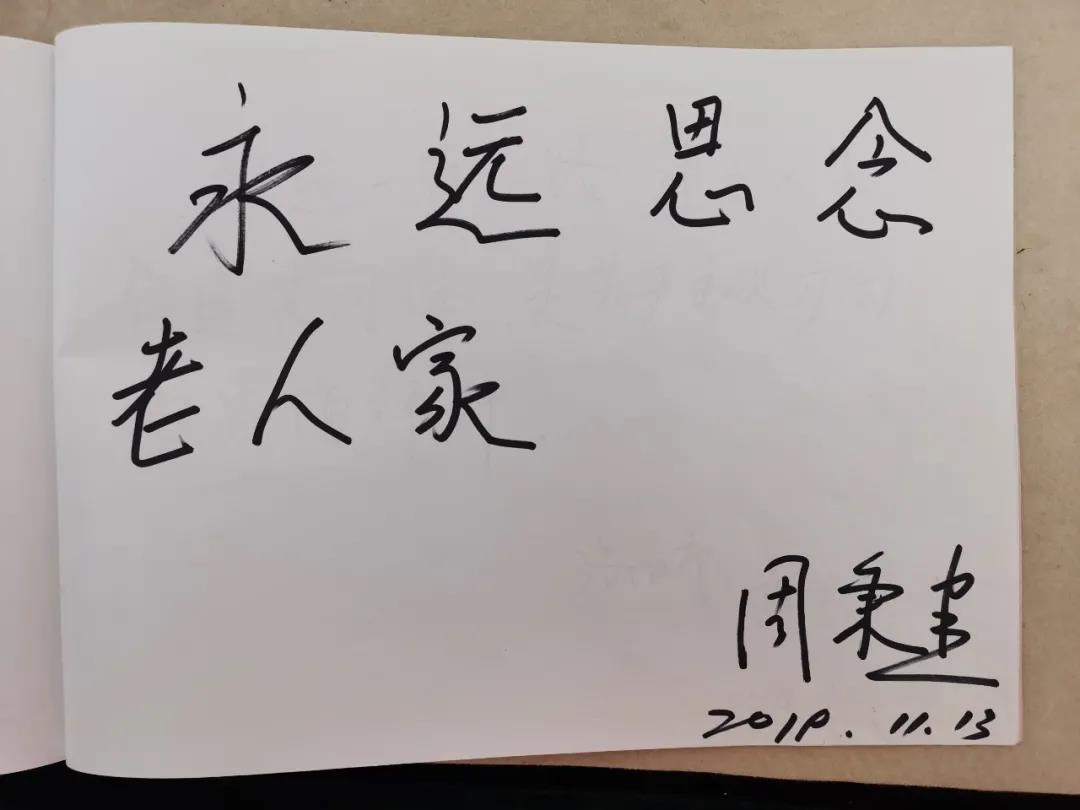 永远思念
老人家
周秉建
2019.11.13